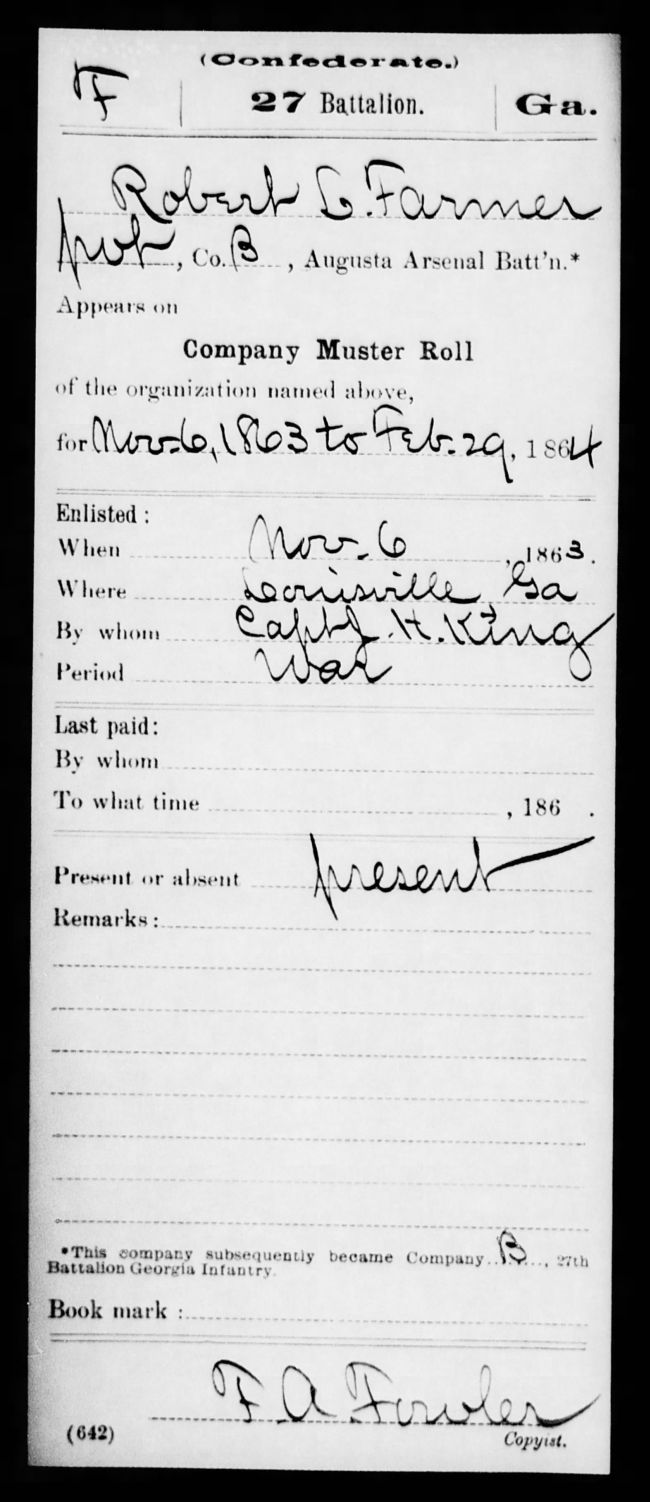 (Confederate.)
F | 27 Battalion. | Ga.
Robert L. Farmer
pvt, Co. B, Augusta Arsenal Batt'n.*
Appears on
Company Muster Roll
of the organization named above,
for Nov. 6, 1863 to Feb. 29, 1864
Enlisted:
When Nov. 6, 1863.
Where Louisville Ga
By whom Capt J. H. King
Period War
Last paid:
By whom
To what time , 186 .
Present or absent present
Remarks:
*This company subsequently became Company B, 27th
Battalion Georgia Infantry.
Book mark :
F A Fowler
(642) Copyist.